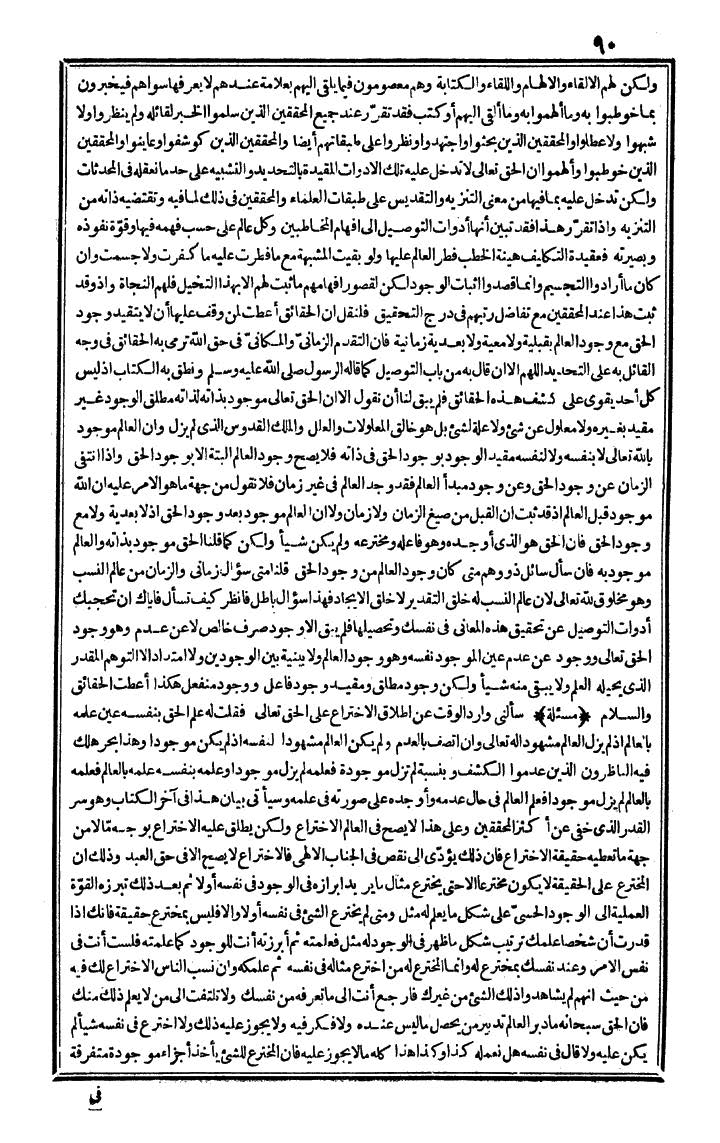 ٩٠
ولكن لهم الالقاء والالهام واللقاء والكتابة وهم معصومون فيما يلقى اليهم بعلامة عندهم لا يعرفها سواهم فيخبرون
بما خوطبوا به وما ألهموا به وما ألقى اليهم أو كتب فقد تقرّر عند جميع المحققين الذين سلموا الخبر لقائله ولم ينظروا ولا
شبهوا ولا عطلوا والمحققين الذين بحثوا واجتهدوا ونظروا على طبقاتهم أيضا والمحققين الذين كوشفوا وعاينوا والمحققين
الذين خوطبوا وألهموا ان الحق تعالى لا تدخل عليه تلك الادوات المقيدة بالتحديد والتشبيه على حد ما نعقله فى المحدثات
ولكن تدخل عليه بما فيها من معنى التنزيه والتقديس على طبقات العلماء والمحققين فى ذلك لما فيه وتقتضيه ذاته من
التنزيه واذا تقرّر هذا فقد تبين أنها أدوات التوصيل الى افهام المخاطبين وكل عالم على حسب فهمه فيها وقوّة نفوذه
وبصيرته فعقيدة التكليف هينة الخطب فطر العالم عليها ولو بقيت المشبهة مع ما فطرت عليه ما كفرت ولا جسمت وان
كان ما أرادوا التجسيم وانما قصدوا اثبات الوجود لكن لقصور افهامهم ما ثبت لهم الا بهذا التخيل فلهم النجاة واذ وقد
ثبت هذا عند المحققين مع تفاضل رتبهم فى درج التحقيق فلنقل ان الحقائق أعطت لمن وقف عليها أن لا يتقيد وجود
الحق مع وجود العالم بقبلية ولا معية ولا بعدية زمانية فان التقدم الزمانىّ والمكانىّ فى حق الله ترمى به الحقائق فى وجه
القائل به على التحديد اللهم الا ان قال به من باب التوصيل كما قاله الرسول صلى الله عليه وسلم ونطق به الكتاب اذ ليس
كل أحد يقوى على كشف هذه الحقائق فلم يبق لنا أن نقول الا ان الحق تعالى موجود بذاته لذاته مطلق الوجود غير
مقيد بغيره ولا معلول عن شئ ولا علة لشئ بل هو خالق المعلولات والعلل والملك القدوس الذى لم يزل وان العالم موجود
بالله تعالى لا بنفسه ولا لنفسه مقيد الوجود بوجود الحق فى ذاته فلا يصح وجود العالم البتة الا بوجود الحق واذا انتفى
الزمان عن وجود الحق وعن وجود مبدأ العالم فقد وجد العالم فى غير زمان فلا نقول من جهة ما هو الامر عليه ان الله
موجود قبل العالم اذ قد ثبت ان القبل من صيغ الزمان ولا زمان ولا ان العالم موجود بعد وجود الحق اذ لا بعدية ولا مع
وجود الحق فان الحق هو الذى أوجده وهو فاعله ومخترعه ولم يكن شيأ ولكن كما قلنا الحق موجود بذاته والعالم
موجود به فان سأل سائل ذو وهم متى كان وجود العالم من وجود الحق قلنا متى سؤال زمانى والزمان من عالم النسب
وهو مخلوق لله تعالى لان عالم النسب له خلق التقدير لا خلق الايجاد فهذا سؤال باطل فانظر كيف تسأل فاياك ان تحجبك
أدوات التوصيل عن تحقيق هذه المعانى فى نفسك وتحصيلها فلم يبق الا وجود صرف خالص لا عن عدم وهو وجود
الحق تعالى ووجود عن عدم عين الموجود نفسه وهو وجود العالم ولا بينية بين الوجودين ولا امتداد الا التوهم المقدر
الذى يحيله العلم ولا يبقى منه شيأ ولكن وجود مطلق ومقيد وجود فاعل ووجود منفعل هكذا أعطت الحقائق
والسلام ﴿مسئلة﴾ سألنى وارد الوقت عن اطلاق الاختراع على الحق تعالى فقلت له علم الحق بنفسه عين علمه
بالعالم اذ لم يزل العالم مشهودا له تعالى وان اتصف بالعدم ولم يكن العالم مشهودا لنفسه اذ لم يكن موجودا وهذا بحر هلك
فيه الناظرون الذين عدموا الكشف وبنسبة لم تزل موجودة فعلمه لم يزل موجودا وعلمه بنفسه علمه بالعالم فعلمه
بالعالم لم يزل موجودا فعلم العالم فى حال عدمه وأوجده على صورته فى علمه وسيأتى بيان هذا فى آخر الكتاب وهو سر
القدر الذى خفى عن أكثر المحققين وعلى هذا لا يصح فى العالم الاختراع ولكن يطلق عليه الاختراع بوجه مّا لا من
جهة ما تعطيه حقيقة الاختراع فان ذلك يؤدّى الى نقص فى الجناب الالهى فالاختراع لا يصح الا فى حق العبد وذلك ان
المخترع على الحقيقة لا يكون مخترعا الا حتى يخترع مثال ما يريد ابرازه فى الوجود فى نفسه أولا ثم بعد ذلك تبرزه القوّة
العملية الى الوجود الحسىّ على شكل ما يعلم له مثل ومتى لم يخترع الشئ فى نفسه أولا والا فليس بمخترع حقيقة فانك اذا
قدرت أن شخصا علمك ترتيب شكل ما ظهر فى الوجود له مثل فعلمته ثم أبرزته أنت للوجود كما علمته فلست أنت فى
نفس الامر وعند نفسك بمخترع له وانما المخترع له من اخترع مثاله فى نفسه ثم علمكه وان نسب الناس الاختراع لك فيه
من حيث انهم لم يشاهدوا ذلك الشئ من غيرك فارجع أنت الى ما تعرفه من نفسك ولا تلتفت الى من لا يعلم ذلك منك
فان الحق سبحانه ما دبر العالم تدبير من يحصل ما ليس عنده ولا فكر فيه ولا يجوز عليه ذلك ولا اخترع فى نفسه شيأ لم
يكن عليه ولا قال فى نفسه هل نعمله كذا وكذا هذا كله ما لا يجوز عليه فان المخترع للشئ يأخذ أجزاء موجودة متفرقة
فى